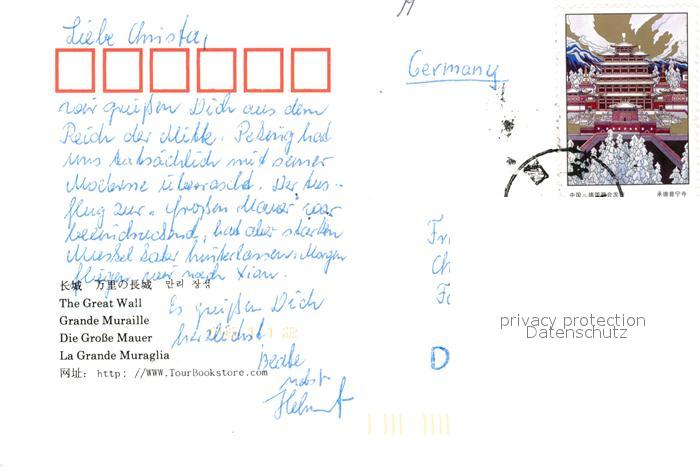 Liebe Christa,
wir grüßen Dich aus dem
Reich der Mitte. Peking hat
uns tatsächlich mit seiner
Moderne überrascht. Der Aus-
flug zur "Großen Mauer" war
beeindruckend, hat aber starken
Muskelkater hinterlassen. Morgen
fliegen wir nach Xian.
Es grüßen Dich
herzlichst
Beate
nebst
Helmut
长城 万里の長城 만리 장성
The Great Wall
Grande Muraille
Die Große Mauer
La Grande Muraglia
网址: http: //WWW.TourBookstore.com
Germany
中国-德国联合发行
承德普宁寺
Fr
Ch
D
privacy protection
Datenschutz